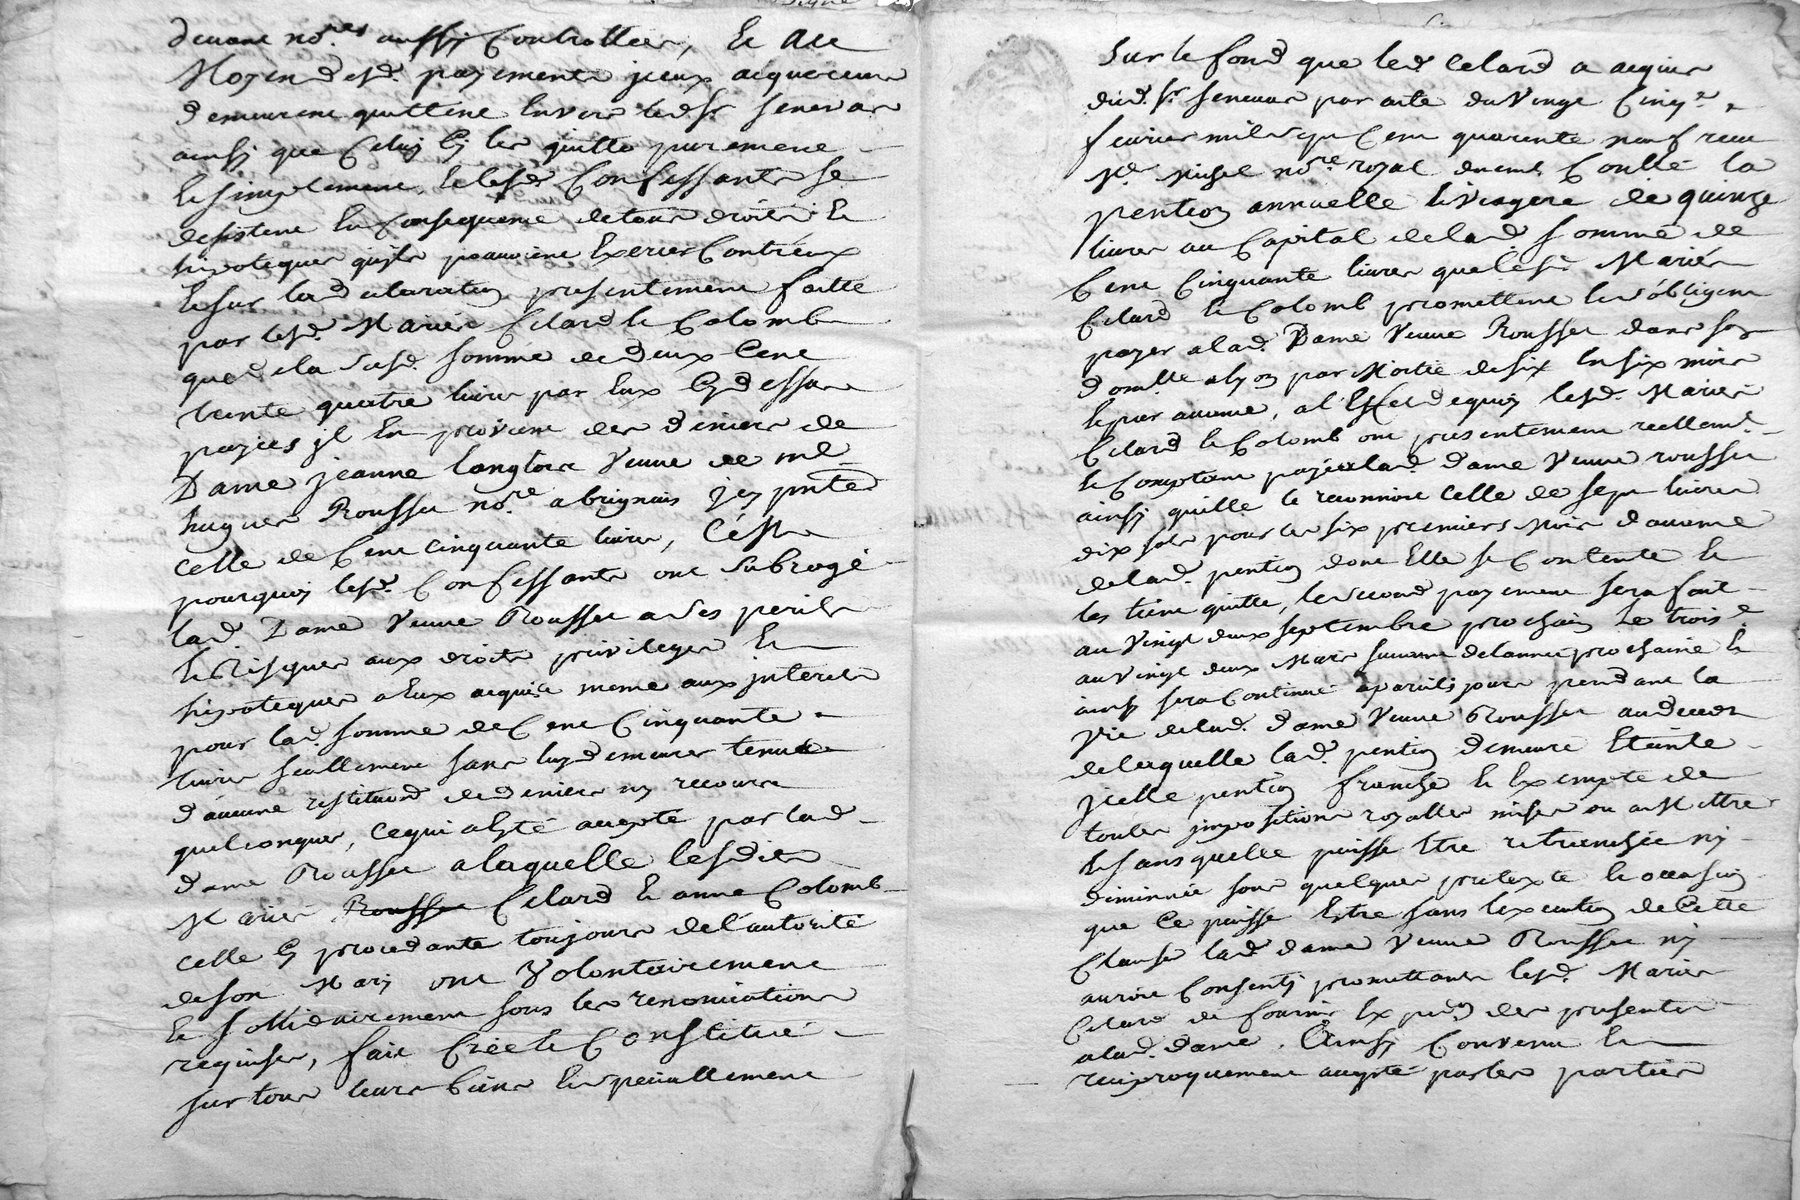 devant no.res aussy Controllée, Et Au
Moyen desd. payements jceux acquereurs
demeurent quittent Envers led. Sr. Senevas
ainsy que Celuy Cy les quitte purement
Et simplement, Et lesd. Confessants se
desistent En Consequence de tous droits Et
hipoteques quils pouvoient Exercer Contreux
Et sur lad. declaration presentement faitte
par lesd. Mariés Celard Et Colomb
que de la susd. somme de deux Cent
trente quatre livres par Eux Cy dessus
payées jl En provient des deniers de
Dame jeanne Langlois Veuve de me.
hugues Rousset no.re a brignais jcy pnte
Celle de Cent cinquante livres, C'est
pourquoy lesd. Confessants ont subrogé
lad. Dame Veuve Rousset a ses perils
Et Risques aux droits privileges Et
hipoteques a Eux acquis meme aux jnterets
pour lad. somme de Cent Cinquante
livres seullement sans luy demeurer tenues
d'aucune restitution de deniers ny recours
quelconques, Ce qui a Esté accepté par lad.
dame Rousset a laquelle lesdits
Mariés Rousset Celard Et anne Colomb
celle Cy procedante toujours de l'autorité
de son Mary ont Volontairement
Et sollidairement sous les renonciations
requises, fait Créé Et Constitué
sur tous leurs biens Et specialement
Sur le fond que led. Celard a acquis
dud. Sr. Senevas par acte du Vingt Cinq.e
fevrier mil sept Cent quarente neuf recu
Me. Michel no.re royal duement Conllé la
pention annuelle Et Viagere de quinze
livres au Capital de lad. somme de
Cent Cinquante livres que lesd. Mariés
Celard Et Colomb promettent Et s'obligent
payer a lad. Dame Veuve Rousset dans son
domille a lyon par Moitié de six En six mois
Et par avance, a l'Effet de quoy lesd. Mariés
Celard Et Colomb ont presentement reellemt.
Et Comptant payé a lad. dame Veuve rousset
ainsy quelle le reconnoit Celle de sept livres
dix sols pour les six premiers Mois d'avance
de lad. pention dont Elle se Contente Et
les tient quitte, le second payement sera fait
au Vingt deux septembre prochain Le trois.e
au Vingt deux Mars suivant de lannée prochaine Et
ainsy sera Continué a pareils jours pendant la
Vie de lad. dame Veuve Rousset au deces
de laquelle lad. pention demeure Eteinte
jcelle pention franche Et Exempte de
toutes jmpositions royalles mises ou a Mettre
Et sans quelle puisse Etre retranchée ny
diminuée sous quelques pretexte Et occasion
que Ce puisse Estre sans l'execution de Cette
Clause lad. dame Veuve Rousset n'y
auroit Consenty promettants lesd. Mariés
Celard de fournir Expon. des presentes
a lad. dame. Ainsy Convenu Et
reciproquement accepté par les parties